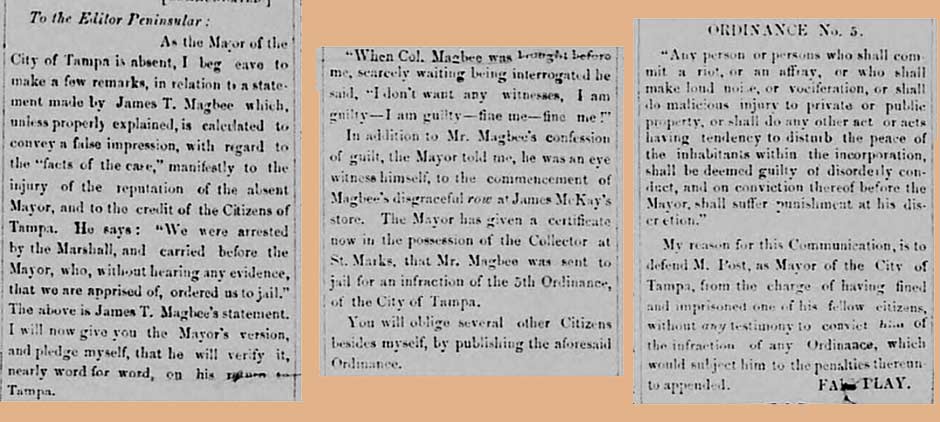 To the Editor Peninsular:
As the Mayor of the
City of Tampa is absent, I beg eave to
make a few remarks, in relation to a state-
ment made by James T. Magbee which,
unless properly explained, is calculated to
convey a false impression, with regard to
the "facts of the care," manifestly to the
injury of the reputation of the absent
Mayor, and to the credit of the Citizens of
Tampa. He says: "We were arrested
by the Marshall, and carried before the
Mayor, who, without hearing any evidence,
that we are apprised of, ordered us to jail."
The above is James T. Magbee's statement.
I will now give you the Mayor's version,
and pledge myself, that he will verify it,
nearly word for word, on his return to
Tampa.
"When Col. Magbee was brought before
me, scarcely waiting being interrogated he
said, "I don't want any witnesses, I am
guilty—I am guilty—fine me—fine me!"
In addition to Mr. Magbee's confession
of guilt, the Mayor told me, he was an eye
witness himself, to the commencement of
Magbee's disgraceful row at James McKay's
store. The Mayor has given a certificate
now in the possession of the Collector at
St. Marks, that Mr. Magbee was sent to
jail for an infraction of the 5th Ordinance,
of the City of Tampa.
You will oblige several other Citizens
besides myself, by publishing the aforesaid
Ordinance.
ORDINANCE No. 5.
"Any person or persons who shall com-
mit a riot, or an affray, or who shall
make loud noise, or vociferation, or shall
do malicious injury to private or public
property, or shall do any other act or acts
having tendency to disturb the peace of
the inhabitants within the incorporation,
shall be deemed guilty of disorderly con-
duct, and on conviction thereof before the
Mayor, shall suffer punishment at his dis-
cretion."
My reason for this Communication, is to
defend M. Post, as Mayor of the City of
Tampa, from the charge of having fined
and imprisoned one of his fellow citizens,
without any testimony to convict him of
the infraction of any Ordinance, which
would subject him to the penalties thereun-
to appended. FAIR PLAY.